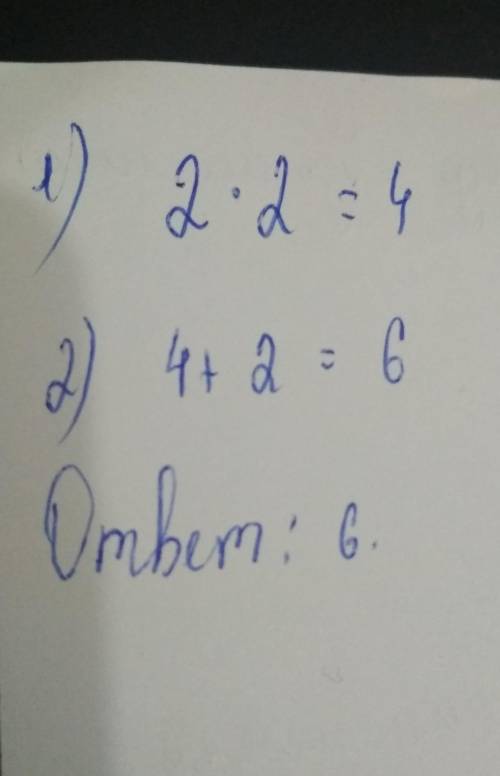 1) 2 · 2 = 4
2) 4 + 2 = 6
Ответ: 6.